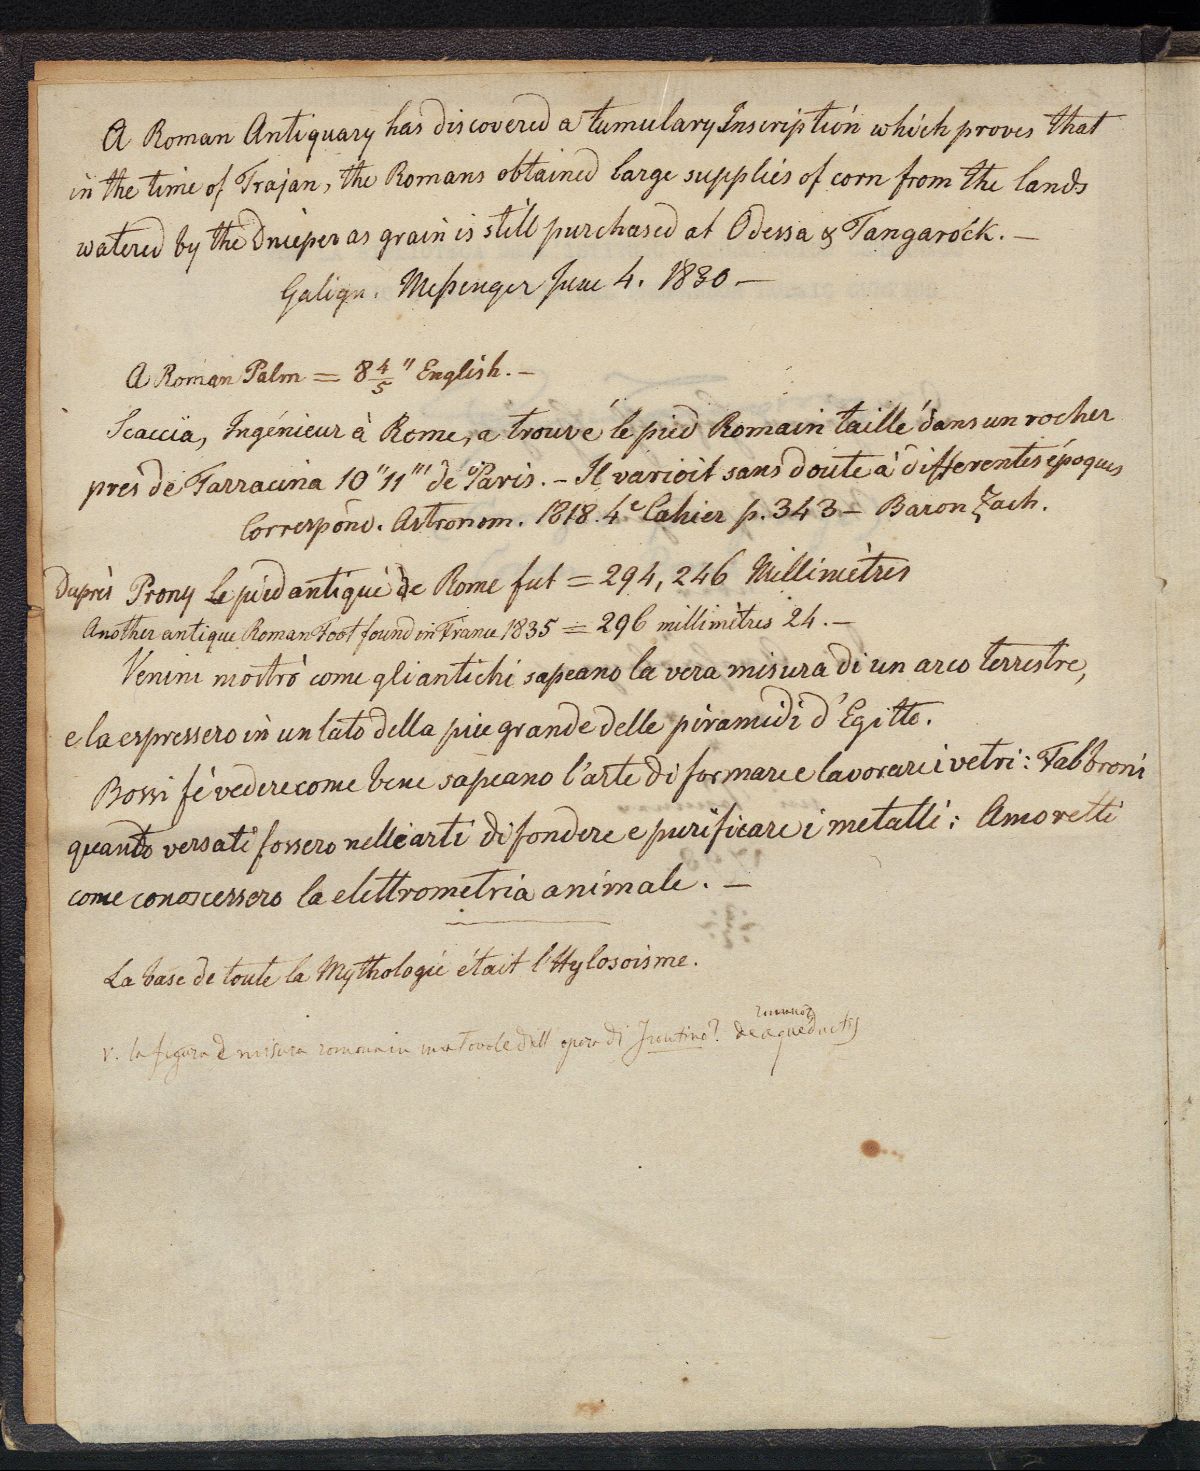 A Roman Antiquary has discovered a tumulary Inscription which proves that
in the time of Trajan, the Romans obtained large supplies of corn from the lands
watered by the Dnieper as grain is still purchased at Odessa & Tangarock. —
Galign. Messenger June 4. 1830 —
A Roman Palm = 8 4/5 " English. —
Scaccia, Ingénieur à Rome, a trouvé le pied Romain taillé dans un rocher
près de Tarracina 10" 11"' de Paris. — Il varioit sans doute à differentes époques
Correspond. Astronom. 1818. 4e Cahier p. 343 — Baron Zach.
Daprès Prony le pied antique de Rome fut = 294, 246 Millimètres
Another antique Roman Foot found in France 1835 = 296 millimètres 24. —
Venini mostrò come gli antichi sapeano la vera misura di un arco terrestre,
e la espressero in un lato della piu grande delle piramidi d'Egitto.
Bossi fè vedere come bene sapeano l'arte di formare e lavorare i vetri: Fabbroni
quanto versati fossero nelle arti di fondere e purificare i metalli: Amoretti
come conoscessero la elettrometria animale. —
La base de toute la Mythologie était l'Hylosoisme.
v. la figura e misura romana in una tavole dell opera di Frontino? de aqueductis